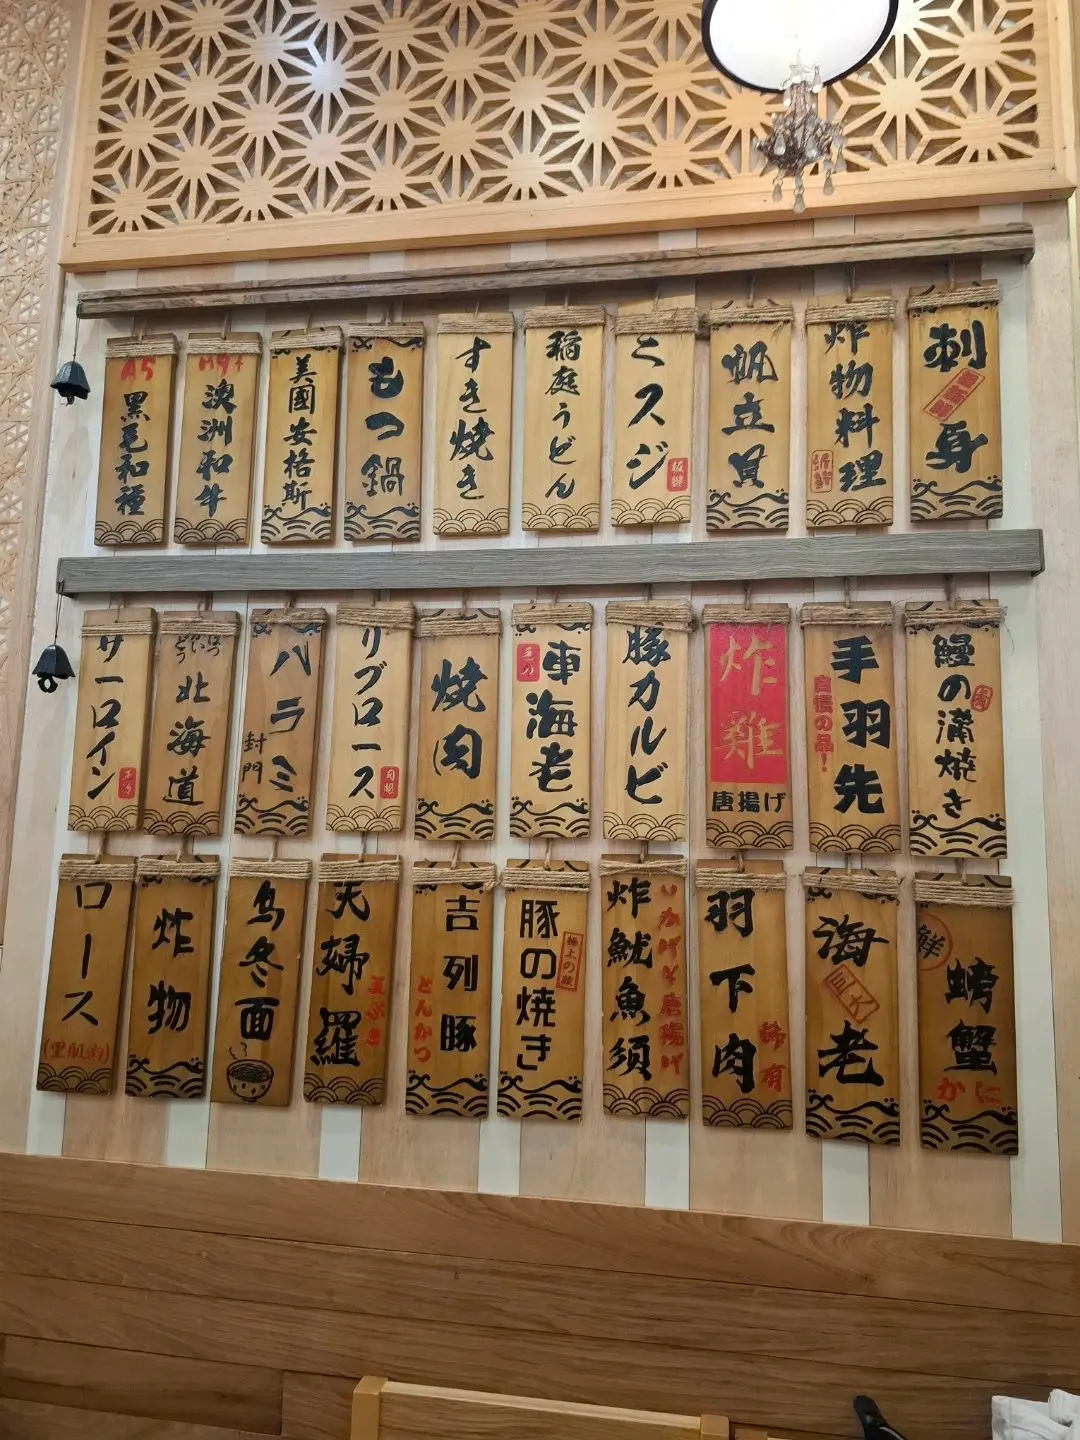 刺身
炸物料理
帆立貝
ミスジ
板腱
稲庭うどん
すき焼き
もつ鍋
美國安格斯
M9+
澳洲和牛
A5
黑毛和種
鰻の蒲焼き
手羽先
自慢の品!
炸雞
唐揚げ
豚カルビ
車海老
焼肉
リブロース
肉眼
ハラミ
封門
ほっかいどう
北海道
サーロイン
鮮
螃蟹
かに
海老
巨大
羽下肉
稀有
炸魷魚須
いかげそ唐揚げ
豚の焼き
極上の旅
吉列豚
とんかつ
天婦羅
烏冬面
炸物
ロース
(里肌肉)